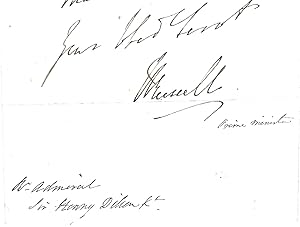 Your Obed Servt
J Russell
Prime Minister
Rr Admiral
Sir Henry Dilkon Kt.